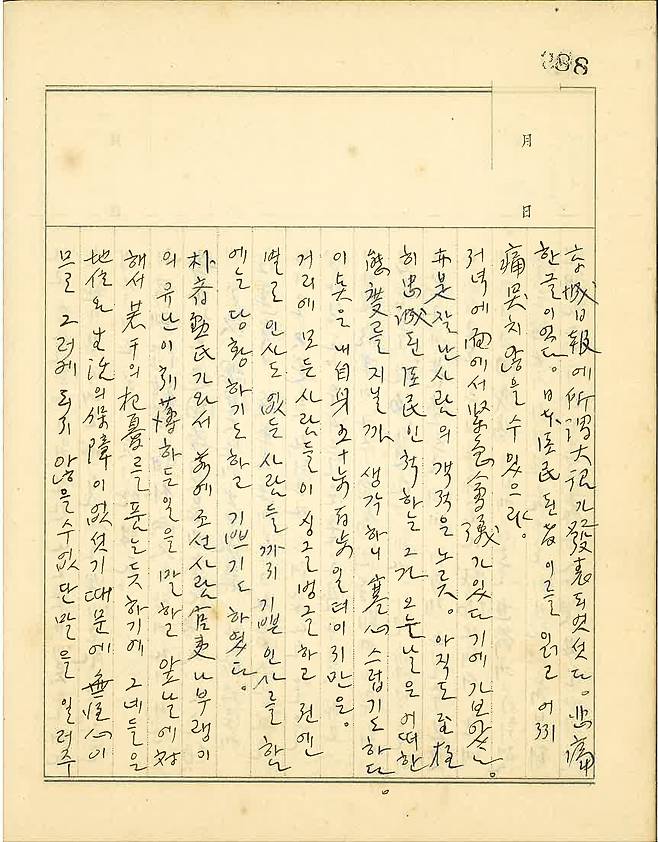 88
月
日
京城日報에 所謂 大浪가 發表되엿섯다. 悲痛
한글이엿다. 日本臣民된者 이를 읽고 어찌
痛哭치 않을 수 있으랴.
저녁에 面에서 緊急會議가 있다기에 가보앗다.
亦是 잘난사람의 객적은 노릇. 아직도
히 忠誠된 臣民인척하는 그가 오는날은 어떠한
態度를 지닐까 생각하니 寒心스럽기도하다.
이 몃은 내自身 五十步百步일터이지만은.
거리에 모든 사람들이 싱글벙글하고 전엔
별로 인사도 없는 사람들까지 기쁜 인사를 할
에는 당황하기도하고 기쁘기도 하였다.
朴 氏가 와서 前에 조선사람 官吏나부랭이
의 유난이 하든일을 말하고 앞날에 対
해서 若干의 杞憂를 품는듯하기에 그네들은
地位와 生活의 保障이 없섯기 때문에 無
므로 그러케 되지 않을수없단 말을 일러주